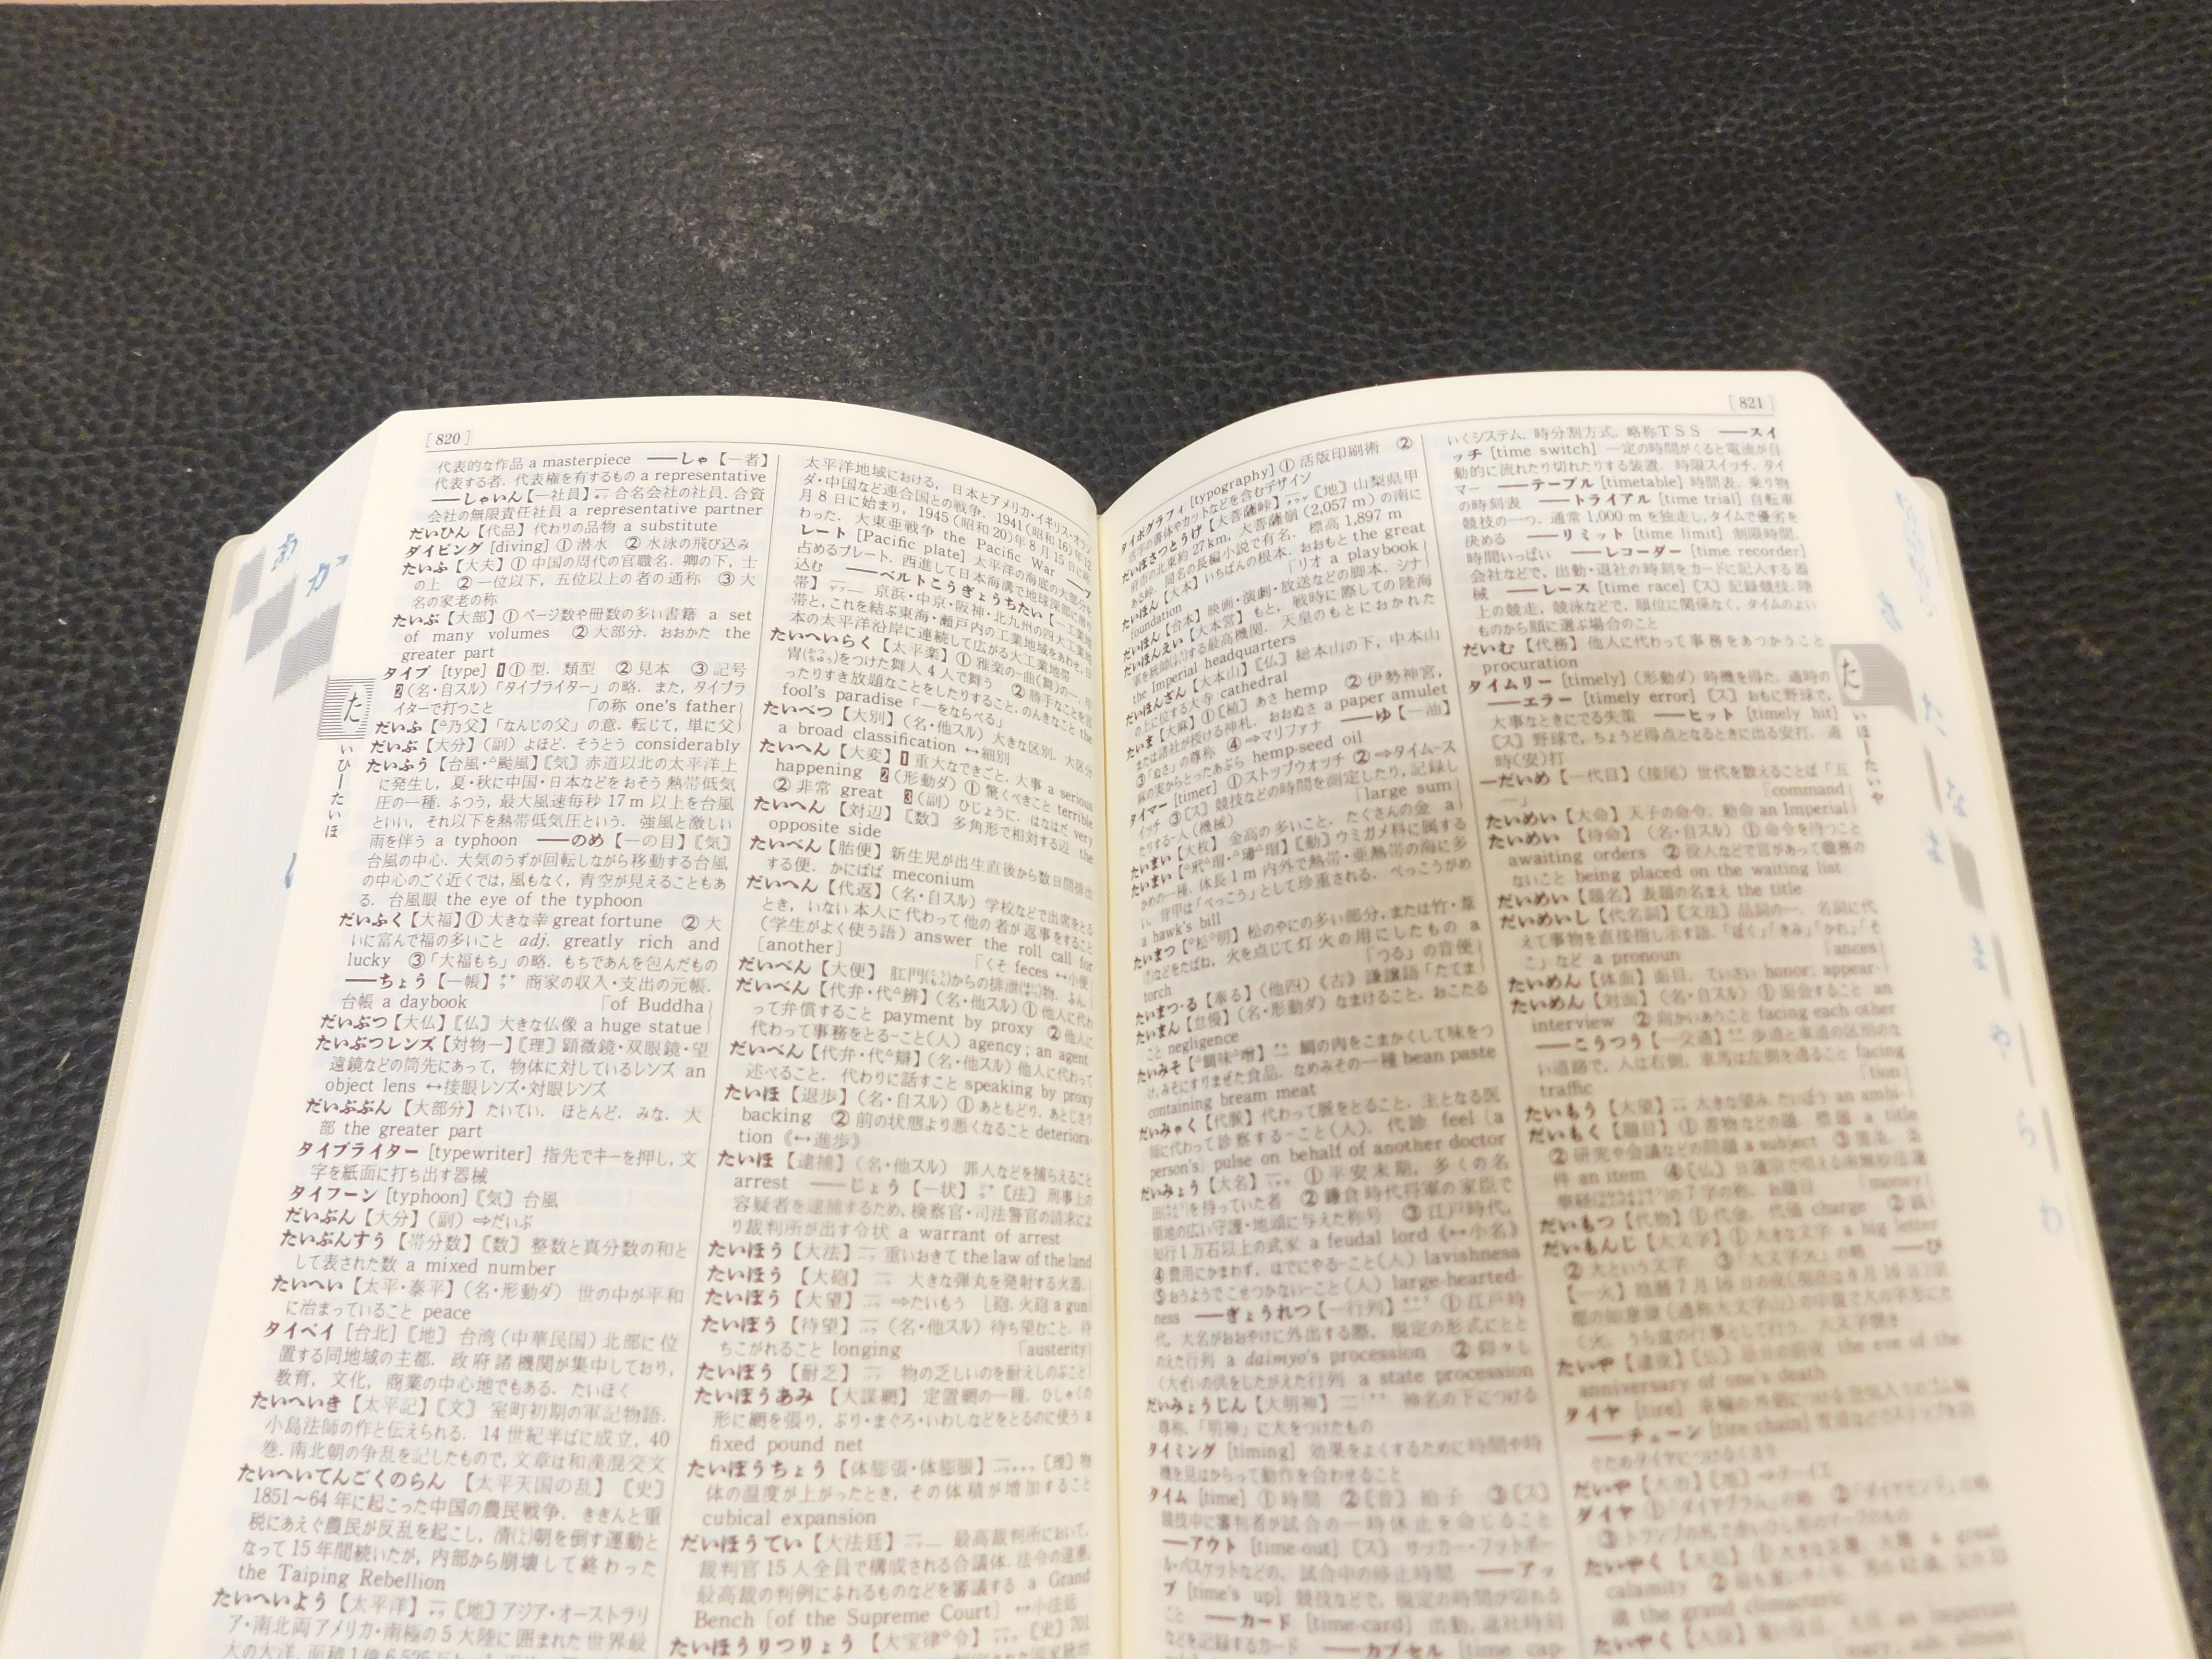 [820]
代表的な作品 a masterpiece ――しゃ【―者】
代表する者. 代表権を有するもの a representative
――しゃいん【―社員】 合名会社の社員. 合資
会社の無限責任社員 a representative partner
だいひん【代品】 代わりの品物 a substitute
ダイビング [diving] ① 潜水 ② 水泳の飛び込み
たいふ【大夫】① 中国の周代の官職名. 卿の下, 士
の上 ② 一位以下, 五位以上の者の通称 ③ 大
名の家老の称
たいぶ【大部】① ページ数や冊数の多い書籍 a set
of many volumes ② 大部分. おおかた the
greater part
タイプ [type] 1① 型. 類型 ② 見本 ③ 記号
2(名・自スル)「タイプライター」の略. また, タイプラ
イターで打つこと 「の称 one's father
だいふ【△乃父】「なんじの父」の意. 転じて, 単に父
だいぶ【大分】(副) よほど. そうとう considerably
たいふう【台風・△颱風】〖気〗赤道以北の太平洋上
に発生し, 夏・秋に中国・日本などをおそう熱帯低気
圧の一種. ふつう, 最大風速毎秒 17 m 以上を台風
といい, それ以下を熱帯低気圧という. 強風と激しい
雨を伴う a typhoon ――のめ【―の目】〖気〗
台風の中心. 大気のうずが回転しながら移動する台風
の中心のごく近くでは, 風もなく, 青空が見えることもあ
る. 台風眼 the eye of the typhoon
だいふく【大福】① 大きな幸 great fortune ② 大
いに富んで福の多いこと adj. greatly rich and
lucky ③「大福もち」の略. もちであんを包んだもの
――ちょう【―帳】 商家の収入・支出の元帳.
台帳 a daybook 「of Buddha
だいぶつ【大仏】〖仏〗大きな仏像 a huge statue
たいぶつレンズ【対物―】〖理〗顕微鏡・双眼鏡・望
遠鏡などの筒先にあって, 物体に対しているレンズ an
object lens ↔接眼レンズ・対眼レンズ
だいぶぶん【大部分】たいてい. ほとんど. みな. 大
部 the greater part
タイプライター [typewriter] 指先でキーを押し, 文
字を紙面に打ち出す器械
タイフーン [typhoon]〖気〗台風
だいぶん【大分】(副) ⇒だいぶ
たいぶんすう【帯分数】〖数〗整数と真分数の和と
して表された数 a mixed number
たいへい【太平・泰平】(名・形動ダ) 世の中が平和
に治まっていること peace
タイペイ [台北]〖地〗台湾(中華民国)北部に位
置する同地域の主都. 政府諸機関が集中しており,
教育, 文化, 商業の中心地でもある. たいほく
たいへいき【太平記】〖文〗室町初期の軍記物語.
小島法師の作と伝えられる. 14 世紀半ばに成立. 40
巻. 南北朝の争乱を記したもので, 文章は和漢混交文
たいへいてんごくのらん【太平天国の乱】〖史〗
1851～64 年に起こった中国の農民戦争. ききんと重
税にあえぐ農民が反乱を起こし, 清朝を倒す運動と
なって 15 年間続いたが, 内部から崩壊して終わった
the Taiping Rebellion
たいへいよう【太平洋】〖地〗アジア・オーストラリ
ア・南北両アメリカ・南極の 5 大陸に囲まれた世界最
太平洋地域における, 日本とアメリカ・イギリス・オラン
ダ・中国など連合国との戦争. 1941 (昭和 16)年 12
月 8 日に始まり, 1945 (昭和 20)年 8 月 15 日に終
わった. 大東亜戦争 the Pacific War ――プ
レート [Pacific plate] 太平洋の海底の大部分を
占めるプレート. 西進して日本海溝で地球深部に潜り
込む ――ベルトこうぎょうちたい【―工業地
帯】 京浜・中京・阪神・北九州の四大工業地
帯と, これを結ぶ東海・瀬戸内の工業地域をあわせ, 日
本の太平洋沿岸に連続して広がる大工業地帯
たいへいらく【太平楽】① 雅楽の一曲(舞)の一. 甲
冑をつけた舞人 4 人で舞う ② 勝手なことを言
ったりすき放題なことをしたりすること. のんきなこと the
fool's paradise「―をならべる」
たいべつ【大別】(名・他スル) 大きな区別. 大区分
a broad classification ↔細別
たいへん【大変】1 重大なできごと. 大事 a serious
happening 2(形動ダ)① 驚くべきこと terrible
② 非常 great 3(副) ひじょうに. はなはだ very
たいへん【対辺】〖数〗多角形で相対する辺 the
opposite side
たいべん【胎便】新生児が出生直後から数日間排出
する便. かにばば meconium
だいへん【代返】(名・自スル) 学校などで出席をとる
とき, いない本人に代わって他の者が返事をすること
(学生がよく使う語) answer the roll call for
[another] 「くそ feces ↔小便
だいべん【大便】肛門からの排泄物. ふん.
だいべん【代弁・代△辨】(名・他スル)① 他人に代わ
って弁償すること payment by proxy ② 他人に
代わって事務をとる-こと(人) agency; an agent
だいべん【代弁・代△辯】(名・他スル) 他人に代わって
述べること. 代わりに話すこと speaking by proxy
たいほ【退歩】(名・自スル)① あともどり. あとじさり
backing ② 前の状態より悪くなること deteriora-
tion《↔進歩》
たいほ【逮捕】(名・他スル) 罪人などを捕らえること
arrest ――じょう【―状】〖法〗刑事上の
容疑者を逮捕するため, 検察官・司法警官の請求によ
り裁判所が出す令状 a warrant of arrest
たいほう【大法】 重いおきて the law of the land
たいほう【大砲】 大きな弾丸を発射する火器.
たいぼう【大望】 ⇒たいもう 〔砲. 火砲 a gun
たいぼう【待望】(名・他スル) 待ち望むこと. 待
ちこがれること longing 「austerity
たいぼう【耐乏】 物の乏しいのを耐えしのぶこと
たいぼうあみ【大謀網】定置網の一種. ひしゃくの
形に網を張り, ぶり・まぐろ・いわしなどをとるのに使う a
fixed pound net
たいぼうちょう【体膨張・体膨脹】〖理〗物
体の温度が上がったとき, その体積が増加すること
cubical expansion
だいほうてい【大法廷】 最高裁判所において,
裁判官 15 人全員で構成される合議体. 法令の違憲,
最高裁の判例にふれるものなどを審議する a Grand
Bench [of the Supreme Court] ↔小法廷
たいほうりつりょう【大宝律△令】〖史〗701
た
いひ―たいほ
[821]
タイポグラフィ [typography] ① 活版印刷術 ②
活字の書体やカットなどを含むデザイン
だいぼさつとうげ【大菩薩峠】〖地〗山梨県甲
府市の北東約 27 km, 大菩薩嶺 (2,057 m) の南に
ある峠. 同名の長編小説で有名. 標高 1,897 m
たいほん【大本】いちばんの根本. おおもと the great
foundation 「リオ a playbook
だいほん【台本】映画・演劇・放送などの脚本. シナ
だいほんえい【大本営】もと, 戦時に際しての陸海
軍を統帥する最高機関. 天皇のもとにおかれた
the Imperial headquarters
だいほんざん【大本山】〖仏〗総本山の下, 中本山
の上に位する大寺 cathedral
たいま【大麻】①〖植〗あさ hemp ② 伊勢神宮,
または諸社が授ける神札. おおぬさ a paper amulet
③「ぬさ」の尊称 ④ ⇒マリファナ ――ゆ【―油】
麻の実からとったあぶら hemp-seed oil
タイマー [timer] ① ストップウォッチ ② ⇒タイム-ス
イッチ ③〖ス〗競技などの時間を測定したり, 記録し
たりする-人(機械) 「large sum
たいまい【大枚】金高の多いこと. たくさんの金 a
たいまい【△玳△瑁・△瑇△瑁】〖動〗ウミガメ科に属する
かめの一種. 体長 1 m 内外で熱帯・亜熱帯の海に多
い. 背甲は「べっこう」として珍重される. べっこうがめ
a hawk's bill
たいまつ【△松△明】松のやにの多い部分, または竹・葦
などをたばね, 火を点じて灯火の用にしたもの a
torch 「つる」の音便
たいまつ・る【奉る】(他四)《古》謙譲語「たてま
たいまん【怠慢】(名・形動ダ) なまけること. おこたる
こと negligence
たいみそ【△鯛味△噌】 鯛の肉をこまかくして味をつ
け, みそにすりまぜた食品. なめみその一種 bean paste
containing bream meat
だいみゃく【代脈】代わって脈をとること. 主となる医
師に代わって診察する-こと(人). 代診 feel [a
person's] pulse on behalf of another doctor
だいみょう【大名】 ① 平安末期, 多くの名
田を持っていた者 ② 鎌倉時代将軍の家臣で
領地の広い守護・地頭に与えた称号 ③ 江戸時代,
知行 1 万石以上の武家 a feudal lord《↔小名》
④ 費用にかまわず, はでにやる-こと(人) lavishness
⑤ おうようでこせつかない-こと(人) large-hearted-
ness ――ぎょうれつ【―行列】 ① 江戸時
代, 大名がおおやけに外出する際, 規定の形式にとと
のえた行列 a daimyo's procession ② 仰々し
く大ぜいの供をしたがえた行列 a state procession
だいみょうじん【大明神】 神名の下につける
尊称.「明神」に大をつけたもの
タイミング [timing] 効果をよくするために時間や時
機を見はからって動作を合わせること
タイム [time] ① 時間 ②〖音〗拍子 ③〖ス〗
競技中に審判者が試合の一時休止を命じること
――アウト [time-out]〖ス〗サッカー・フットボー
ル・バスケットなどの, 試合中の停止時間 ――アッ
プ [time's up] 競技などで, 規定の時間が切れる
こと ――カード [time-card] 出勤, 退社時刻
などを記録するカード ――カプセル [time cap-
いくシステム. 時分割方式. 略称ＴＳＳ ――スイ
ッチ [time switch] 一定の時間がくると電流が自
動的に流れたり切れたりする装置. 時限スイッチ. タイ
マー ――テーブル [timetable] 時間表. 乗り物
の時刻表 ――トライアル [time trial] 自転車
競技の一つ. 通常 1,000 m を独走し, タイムで優劣を
決める ――リミット [time limit] 制限時間.
時間いっぱい ――レコーダー [time recorder]
会社などで, 出勤・退社の時刻をカードに記入する器
械 ――レース [time race]〖ス〗記録競技. 陸
上の競走, 競泳などで, 順位に関係なく, タイムのよい
ものから順に選ぶ場合のこと
だいむ【代務】他人に代わって事務をあつかうこと
procuration
タイムリー [timely] (形動ダ) 時機を得た. 適時の
――エラー [timely error]〖ス〗おもに野球で,
大事なときにでる失策 ――ヒット [timely hit]
〖ス〗野球で, ちょうど得点となるときに出る安打. 適
時(安)打
―だいめ【―代目】(接尾) 世代を数えることば「五
―」 「command
たいめい【大命】天子の命令. 勅命 an Imperial
たいめい【待命】(名・自スル)① 命令を待つこと
awaiting orders ② 役人などで官があって職務の
ないこと being placed on the waiting list
だいめい【題名】表題の名まえ the title
だいめいし【代名詞】〖文法〗品詞の一. 名詞に代
えて事物を直接指し示す語.「ぼく」「きみ」「かれ」「そ
こ」など a pronoun 「ances
たいめん【体面】面目. ていさい honor; appear-
たいめん【対面】(名・自スル)① 面会すること an
interview ② 向かいあうこと facing each other
――こうつう【―交通】 歩道と車道の区別のな
い道路で, 人は右側, 車馬は左側を通ること facing
traffic 「tion
たいもう【大望】 大きな望み. たいぼう an ambi-
だいもく【題目】① 書物などの題. 標題 a title
② 研究や会議などの問題 a subject
件 an item 「money
だいもつ【代物】① 代金. 代価 charge
だいもんじ【大文字】① 大きな文字 a big letter
② 大という文字 ③「大文字火」の略 ――ひ
たいや【逮夜】〖仏〗 the eve of the
anniversary of one's death
タイヤ [tire]
――チェーン [tire chain]
ダイヤ ①「ダイヤグラム」の略 ②「ダイヤモンド」の略
たいやく【大厄】 a great
calamity
the grand climacteric
た
いほ―たいや
あ
か
た
な
は
ま
や
ら
わ